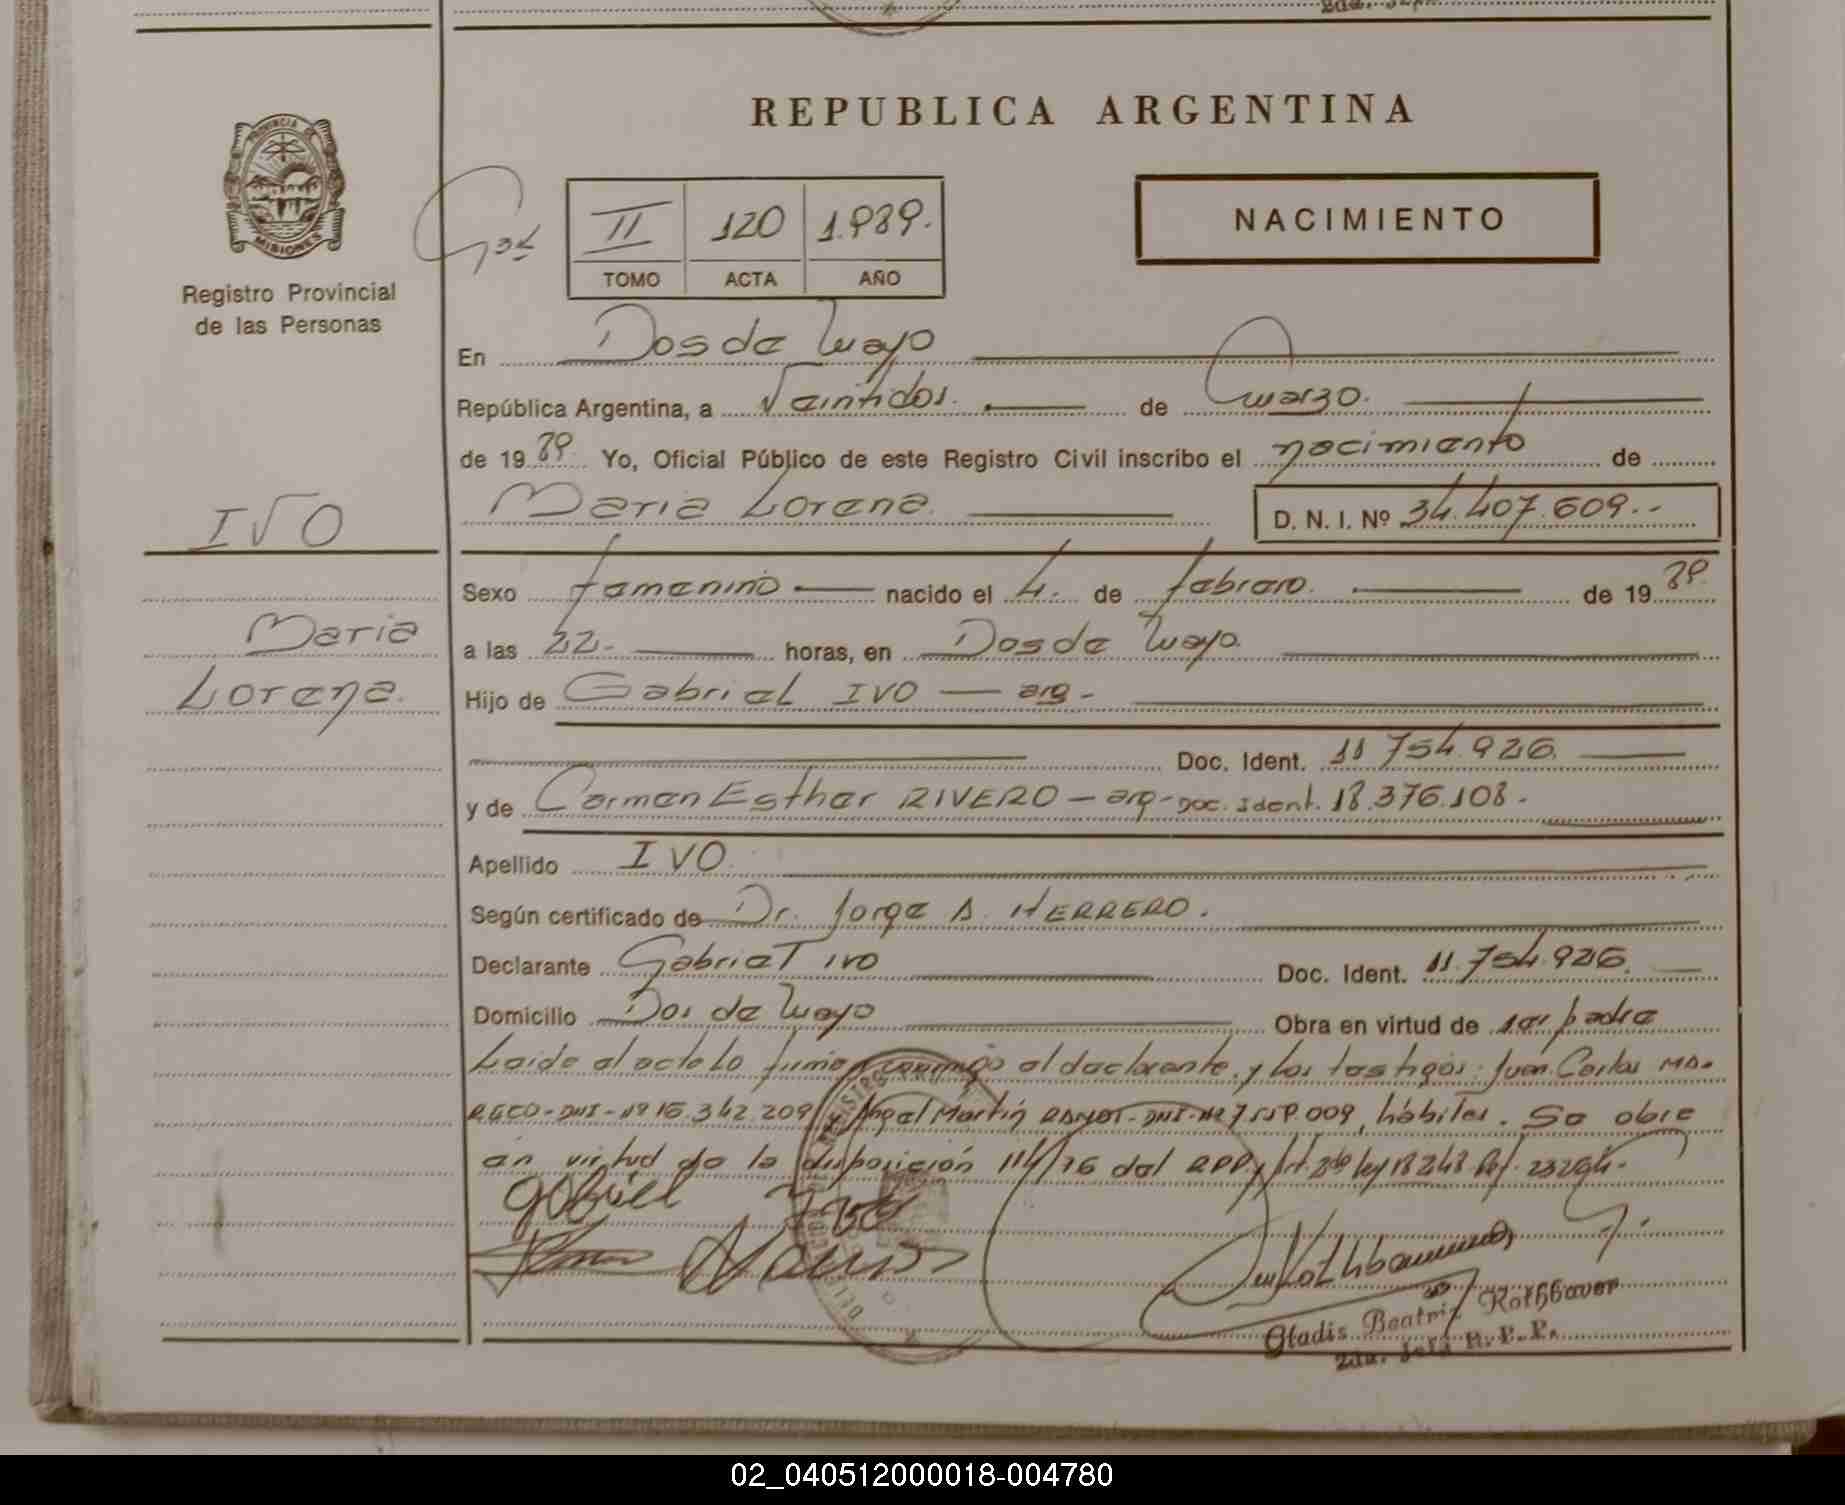 REPUBLICA ARGENTINA
PROVINCIA DE
MISIONES
Registro Provincial
de las Personas
II 120 1.989.
TOMO ACTA AÑO
NACIMIENTO
En Dos de Mayo
República Argentina, a Veintidos. de Marzo.
de 19 89. Yo, Oficial Público de este Registro Civil inscribo el nacimiento de
Maria Lorena.
D. N. I. Nº 34.407.609.-
IVO
Maria
Lorena.
Sexo femenino nacido el 4. de febrero. de 19 89.
a las 22.- horas, en Dos de Mayo.
Hijo de Gabriel IVO — arg-
Doc. Ident. 11.754.926.
y de Carmen Esther RIVERO — arg- Doc. Ident. 18.376.108-
Apellido IVO.
Según certificado de Dr. Jorge A. HERRERO.
Declarante Gabriel Ivo Doc. Ident. 11.754.926.
Domicilio Dos de Mayo Obra en virtud de ser padre
Leida el acta la firma conmigo el declarante y los testigos: Juan Carlos
DNI-Nº 16.342.209 Angel Martin DNI-Nº 009, hábiles. Se obre
en virtud de la disposición 114/76 del RPP y Art. 2º de ley 18248 Ref. 23264-
Gabriel Ivo
Gladis Beatriz Rothbaver
2da. Jefa R.P.P.
02_040512000018-004780